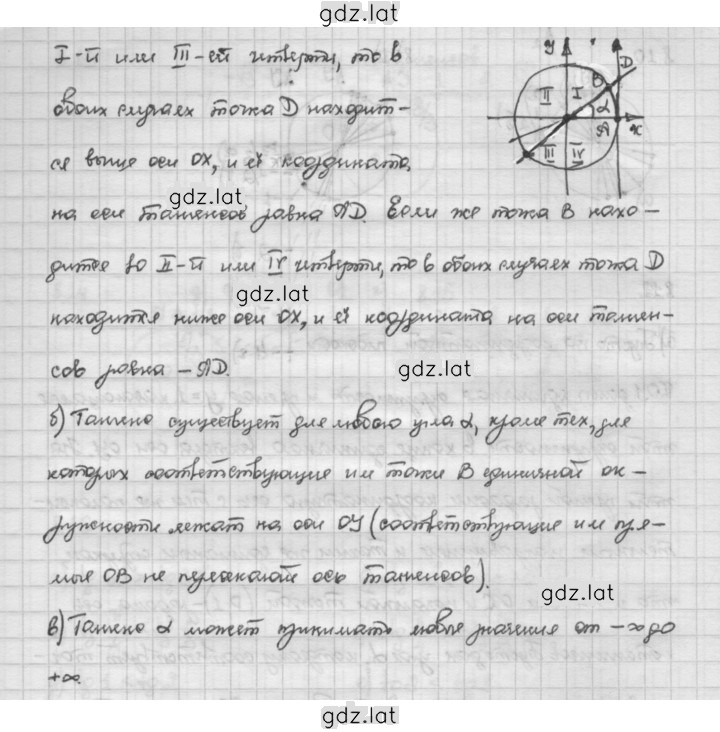 gdz.lat
I-й или III-ей четверти, то в
обоих случаях точка D находит-
ся выше оси OX, и её координата
gdz.lat
на оси тангенсов равна AD. Если же точка B нахо-
дится во II-й или IV четверти, то в обоих случаях точка D
gdz.lat
находится ниже оси OX, и её координата на оси танген-
сов равна - AD.
gdz.lat
б) Тангенс существует для любого угла α, кроме тех, для
которых соответствующие им точки B единичной ок-
ружности лежат на оси OY (соответствующие им пря-
мые OB не пересекают ось тангенсов).
gdz.lat
в) Тангенс α может принимать любые значения от -∞ до
+∞.
gdz.lat
y
D
B
II I
α
A x
III IV